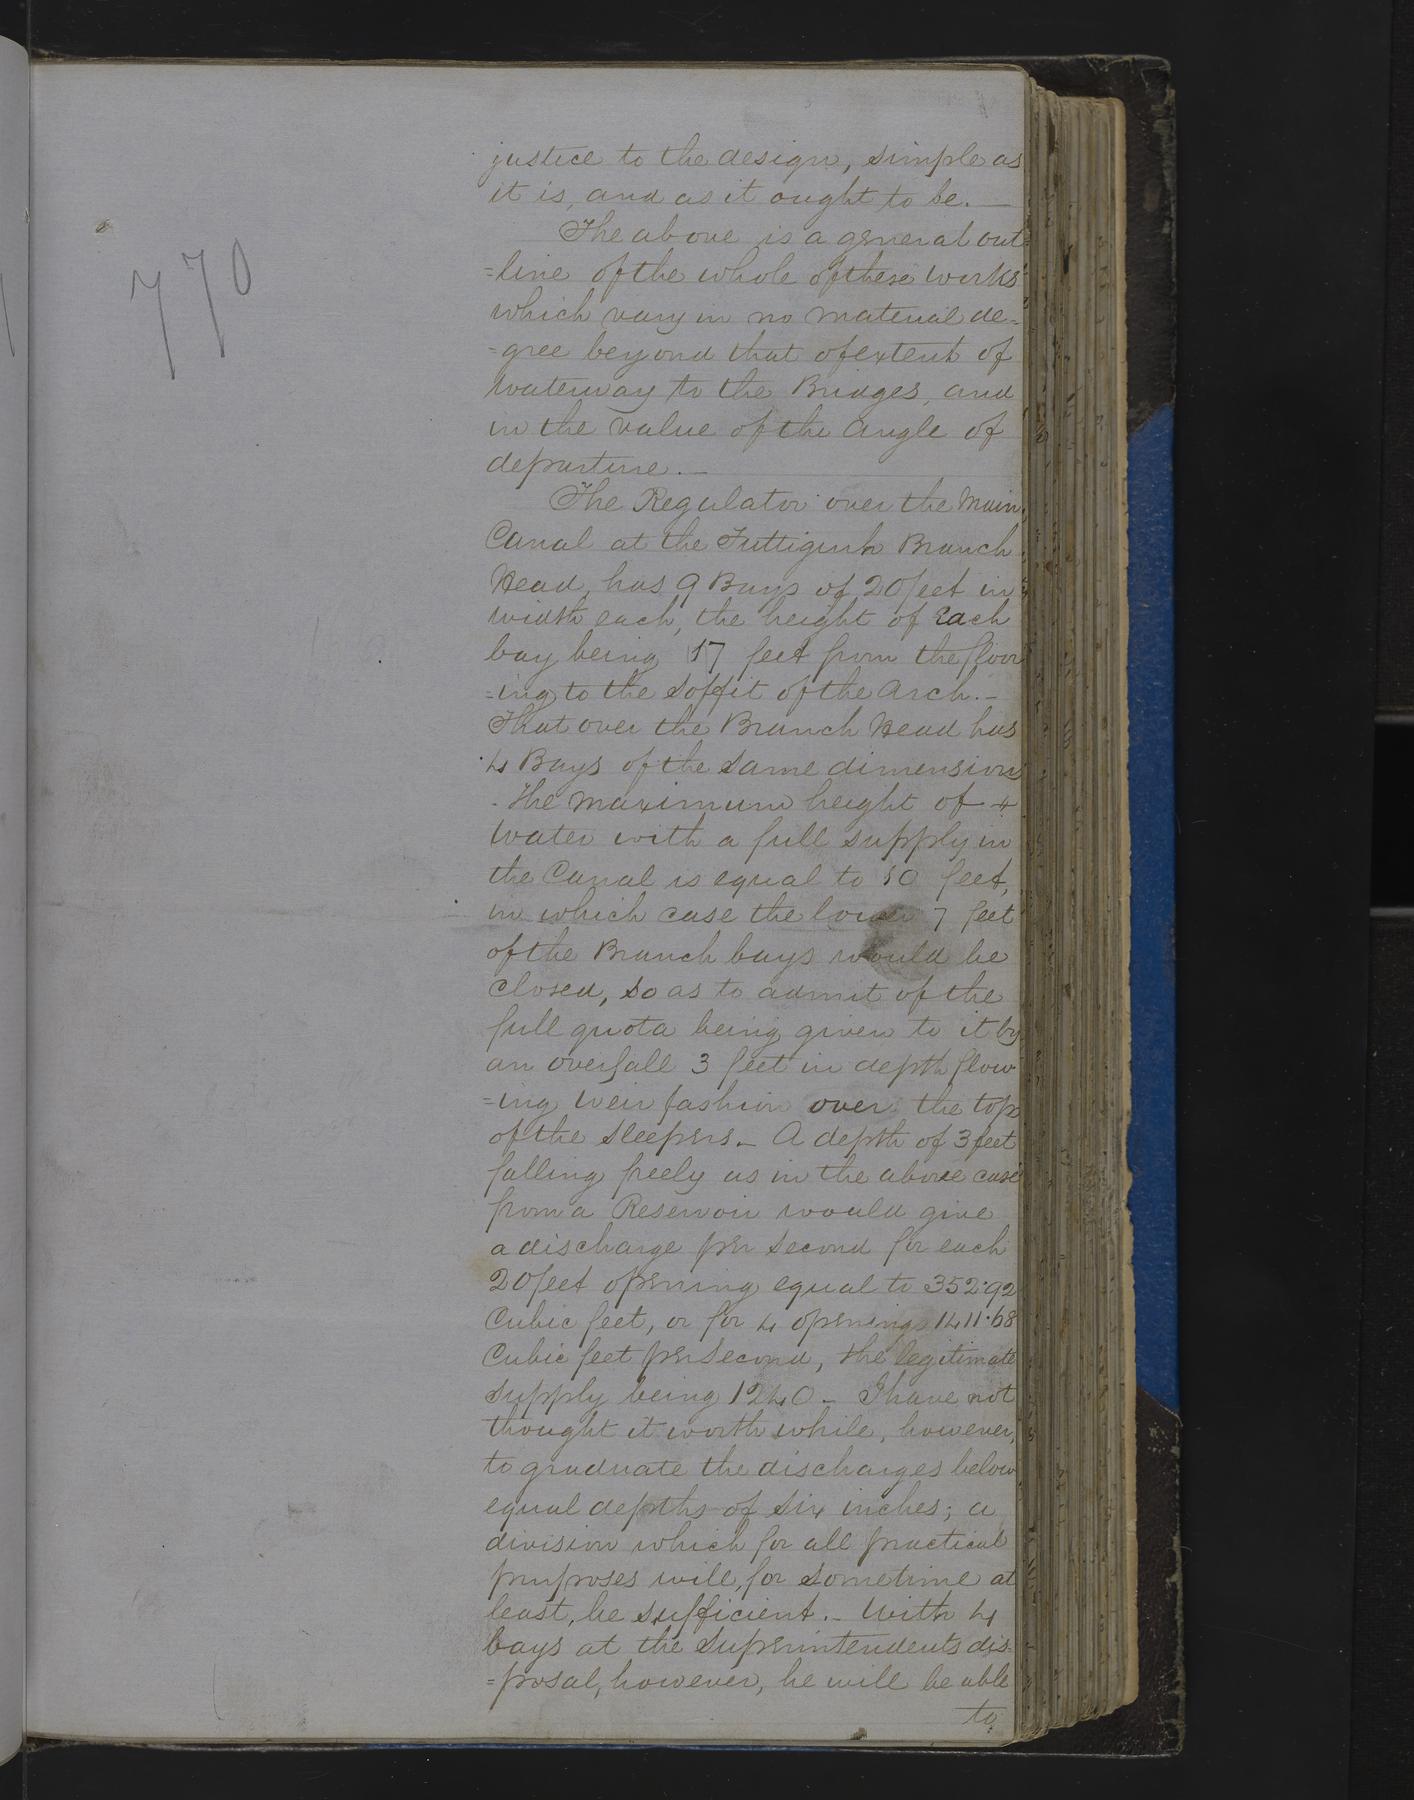 770
justice to the design, simple as
it is, and as it ought to be. —
The above is a general out
=line of the whole of these works
which vary in no material de-
=gree beyond that of extent of
waterway to the Bridges, and
in the value of the angle of
departure. —
The Regulator over the Main
Canal at the Futtigurh Branch
Head, has 9 Bays of 20 feet in
width each, the height of Each
bay being 17 feet from the floor
=ing to the soffit of the Arch. —
That over the Branch Head has
4 Bays of the same dimensions
. The maximum height of +
water with a full supply in
the Canal is equal to 10 feet,
in which case the lower 7 feet
of the Branch bays would be
closed, so as to admit of the
full quota being given to it by
an overfall 3 feet in depth flow
=ing weir fashion over the top
of the sleepers. — A depth of 3 feet
falling freely as in the above case
from a Reservoir would give
a discharge per second for each
20 feet opening equal to 352.92
Cubic feet, or for 4 openings 1411.68
Cubic feet per second, the legitimate
supply being 1240 — I have not
thought it worth while, however,
to graduate the discharges below
equal depths of six inches; a
division which for all practical
purposes will, for sometime at
least, be sufficient. — With 4
bays at the Superintendents dis-
=posal, however, he will be able
to